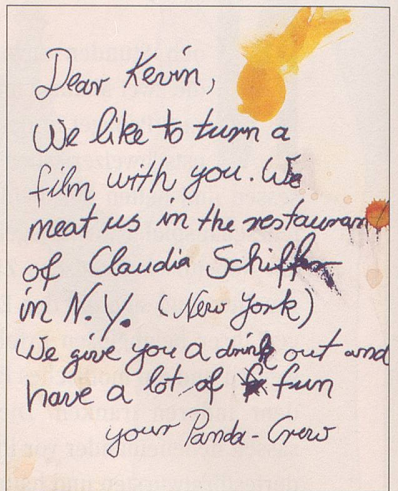 Dear Kevin,
We like to turn a
film with you. We
meat us in the restaurant
of Claudia Schiffer
in N.Y. (New York)
We give you a drink out and
have a lot of fun
your Panda-Crew